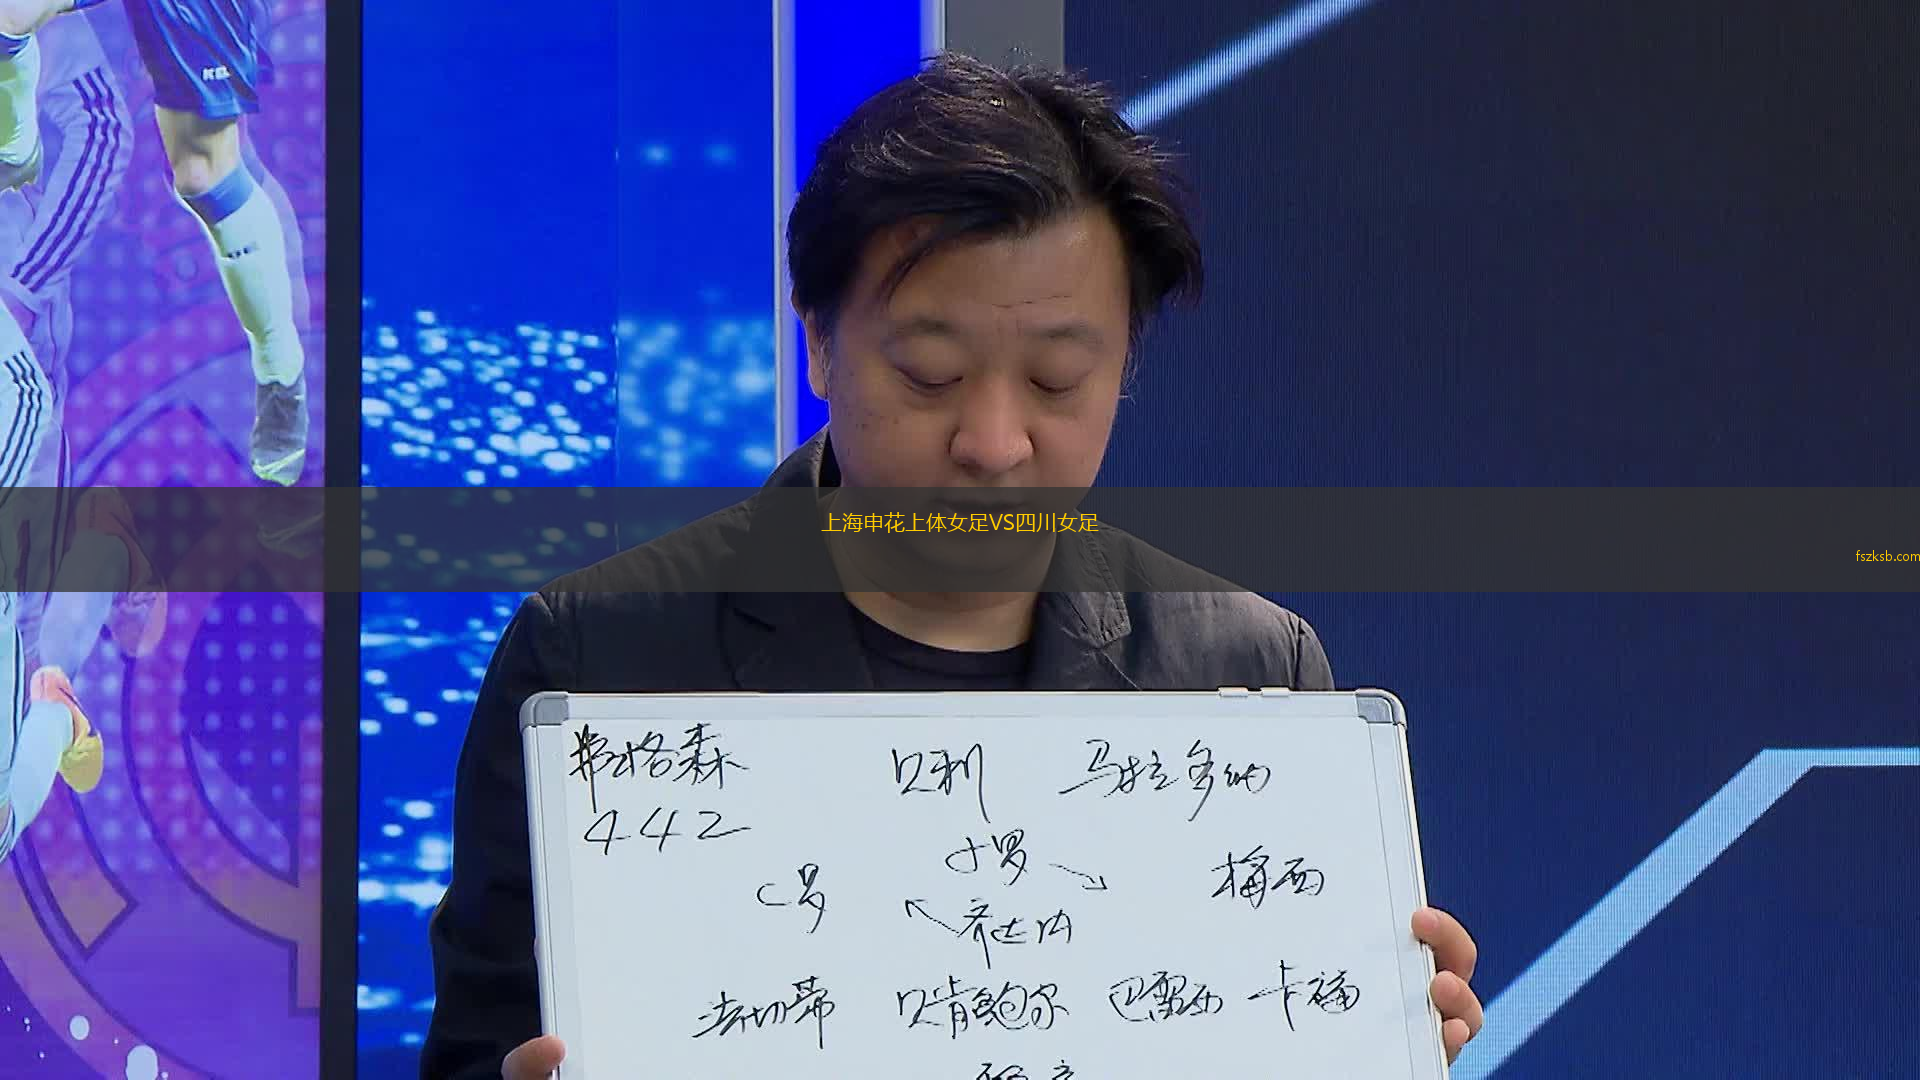 KELME
上海申花上体女足VS四川女足
fszksb.com
弗格森
贝利 马拉多纳
442
小罗
C罗 梅西
齐达内
法切蒂 贝肯鲍尔 巴雷西 卡福